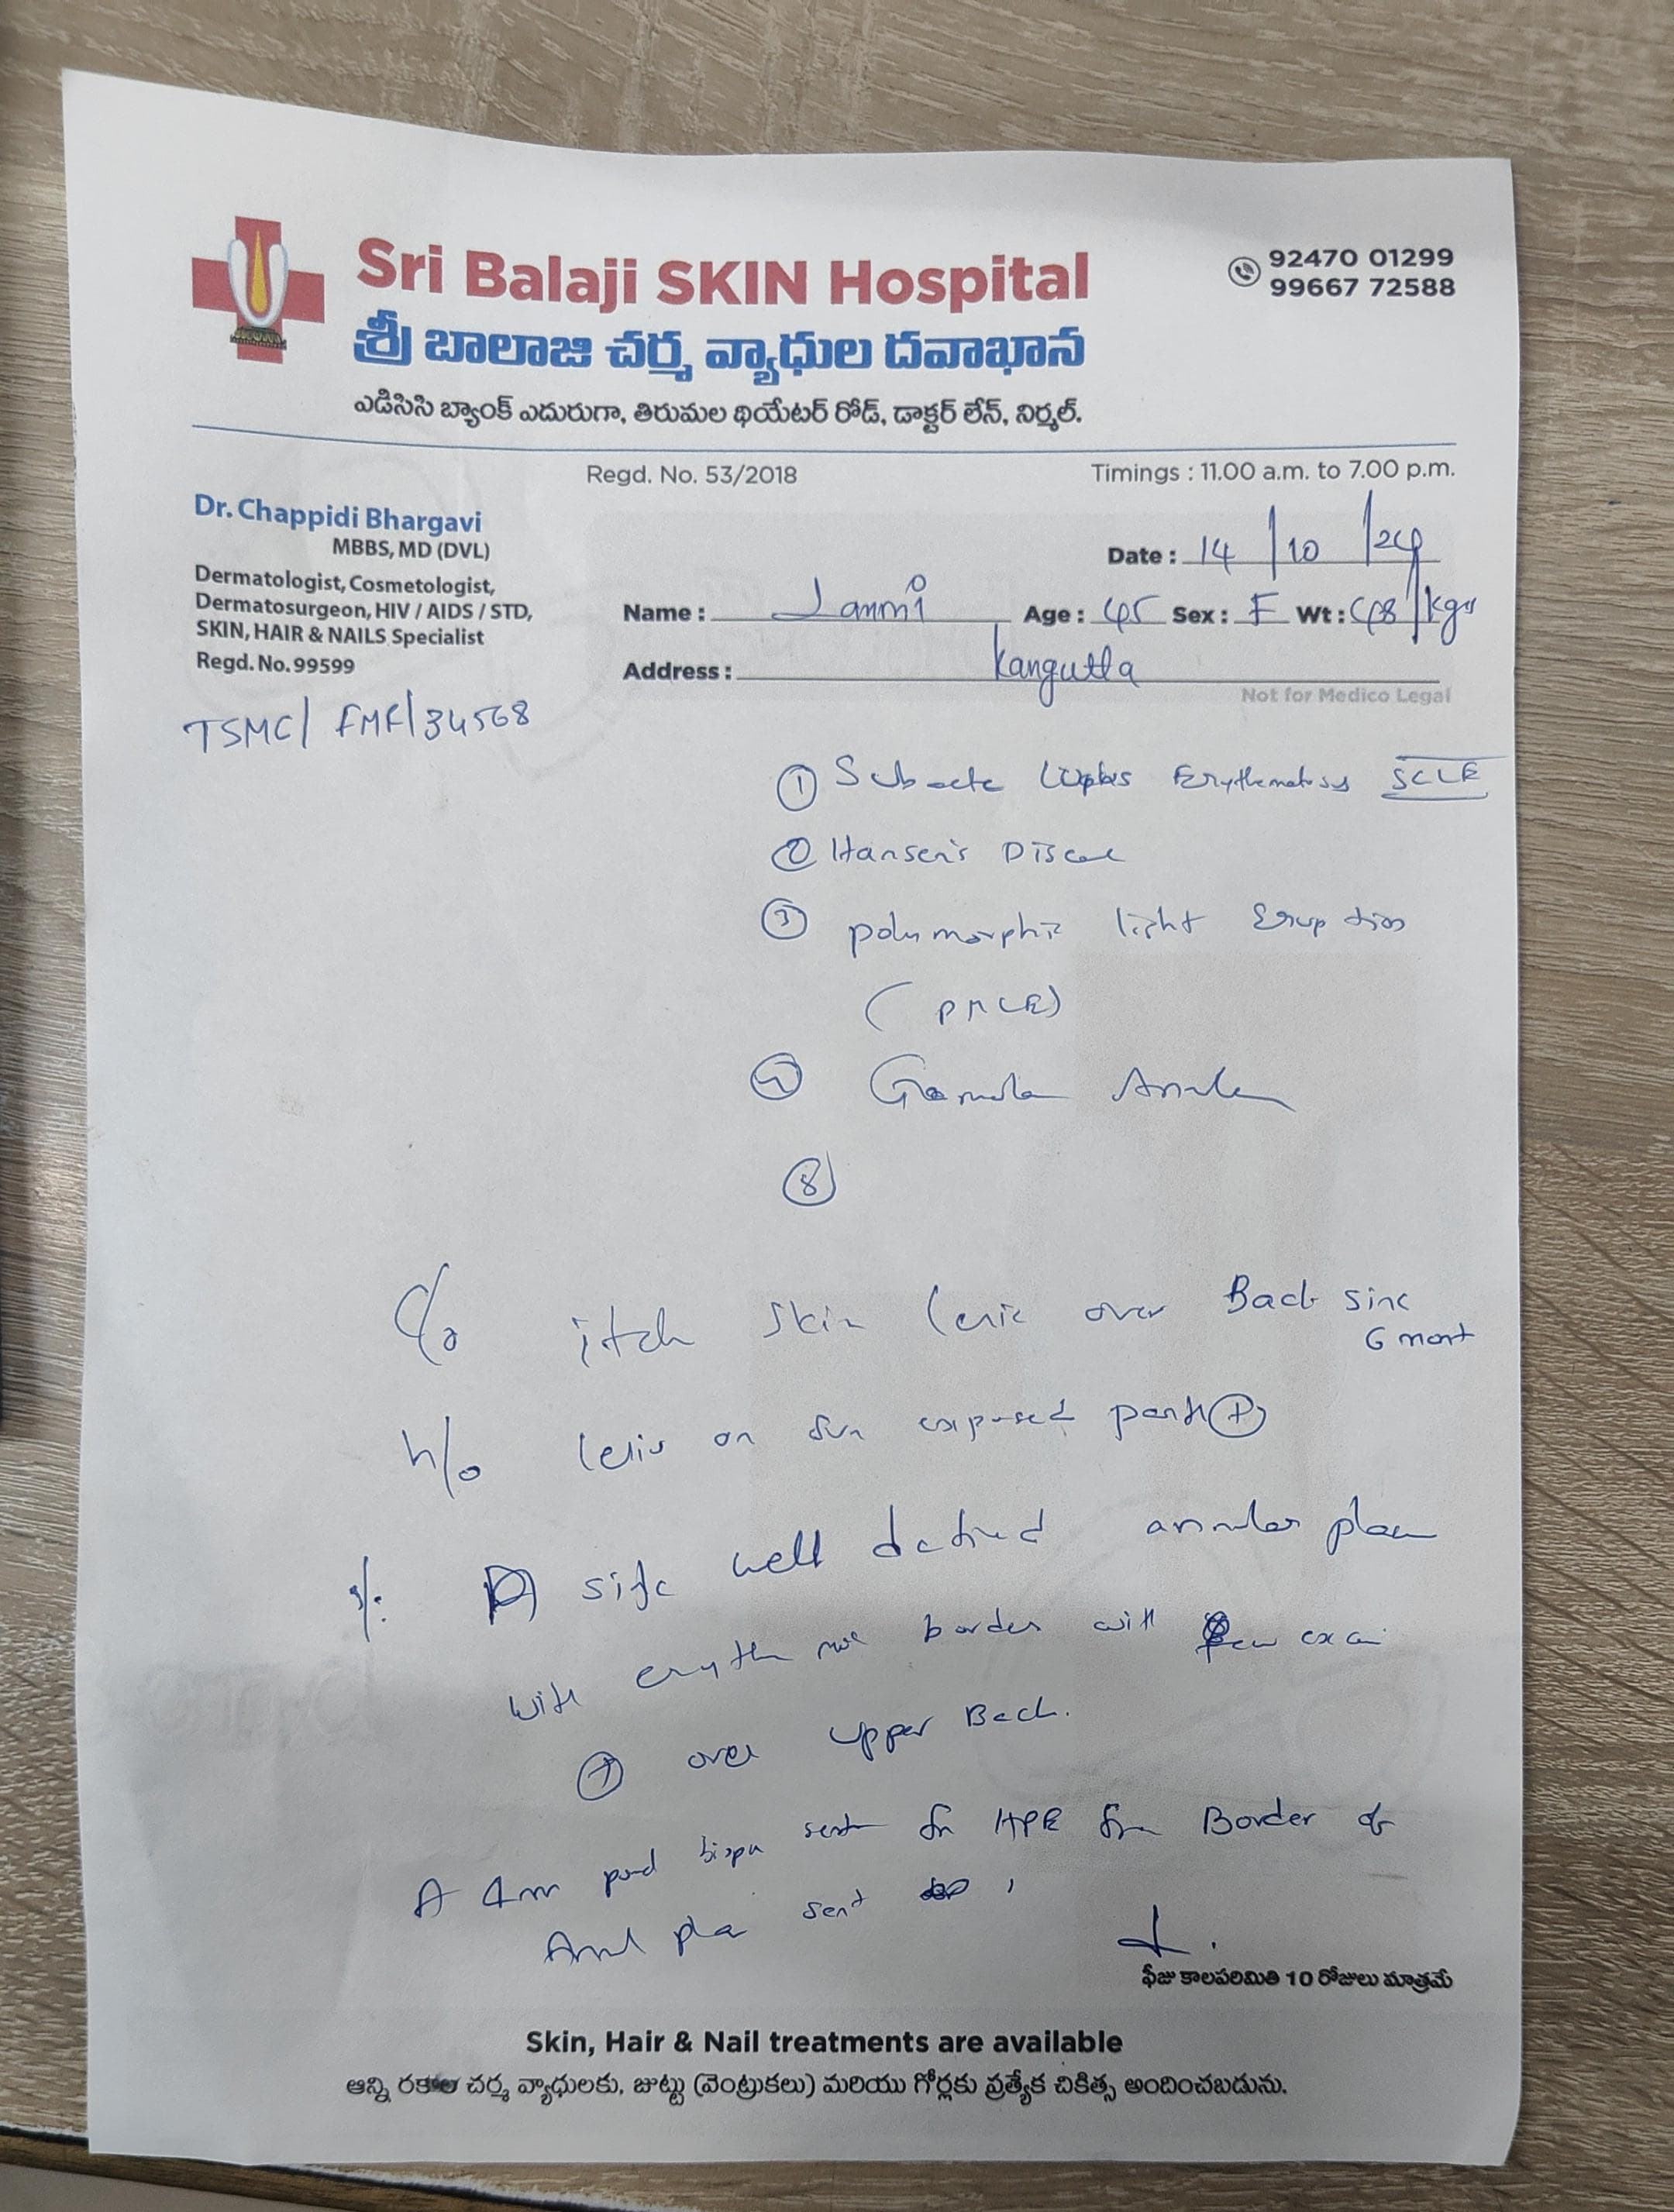 Sri Balaji SKIN Hospital
92470 01299
99667 72588
శ్రీ బాలాజి చర్మ వ్యాధుల దవాఖాన
ఎడిసిసి బ్యాంక్ ఎదురుగా, తిరుమల థియేటర్ రోడ్, డాక్టర్ లేన్, నిర్మల్.
Regd. No. 53/2018
Timings : 11.00 a.m. to 7.00 p.m.
Dr. Chappidi Bhargavi
MBBS, MD (DVL)
Dermatologist, Cosmetologist,
Dermatosurgeon, HIV / AIDS / STD,
SKIN, HAIR & NAILS Specialist
Regd. No. 99599
TSMC/ FMR/34568
Date : 14/10/24
Name : Age : 45 Sex : F Wt : 48/kgs
Address : Kangutta
Not for Medico Legal
① Subacute Lupus Erythematosus SCLE
② Hansen's Disease
③ polymorphic light Eruption
(PMLE)
④ Annulare
⑤
C/o itch skin lesion over Back since 6 month
h/o lesion on sun exposed part ⊕
side well defined annular plaque
with border with few
⊕ over upper Back.
A 4mm punch biopsy sent for HPE from Border of
sent
ఫీజు కాలపరిమితి 10 రోజులు మాత్రమే
Skin, Hair & Nail treatments are available
అన్ని రకాల చర్మ వ్యాధులకు, జుట్టు (వెంట్రుకలు) మరియు గోర్లకు ప్రత్యేక చికిత్స అందించబడును.